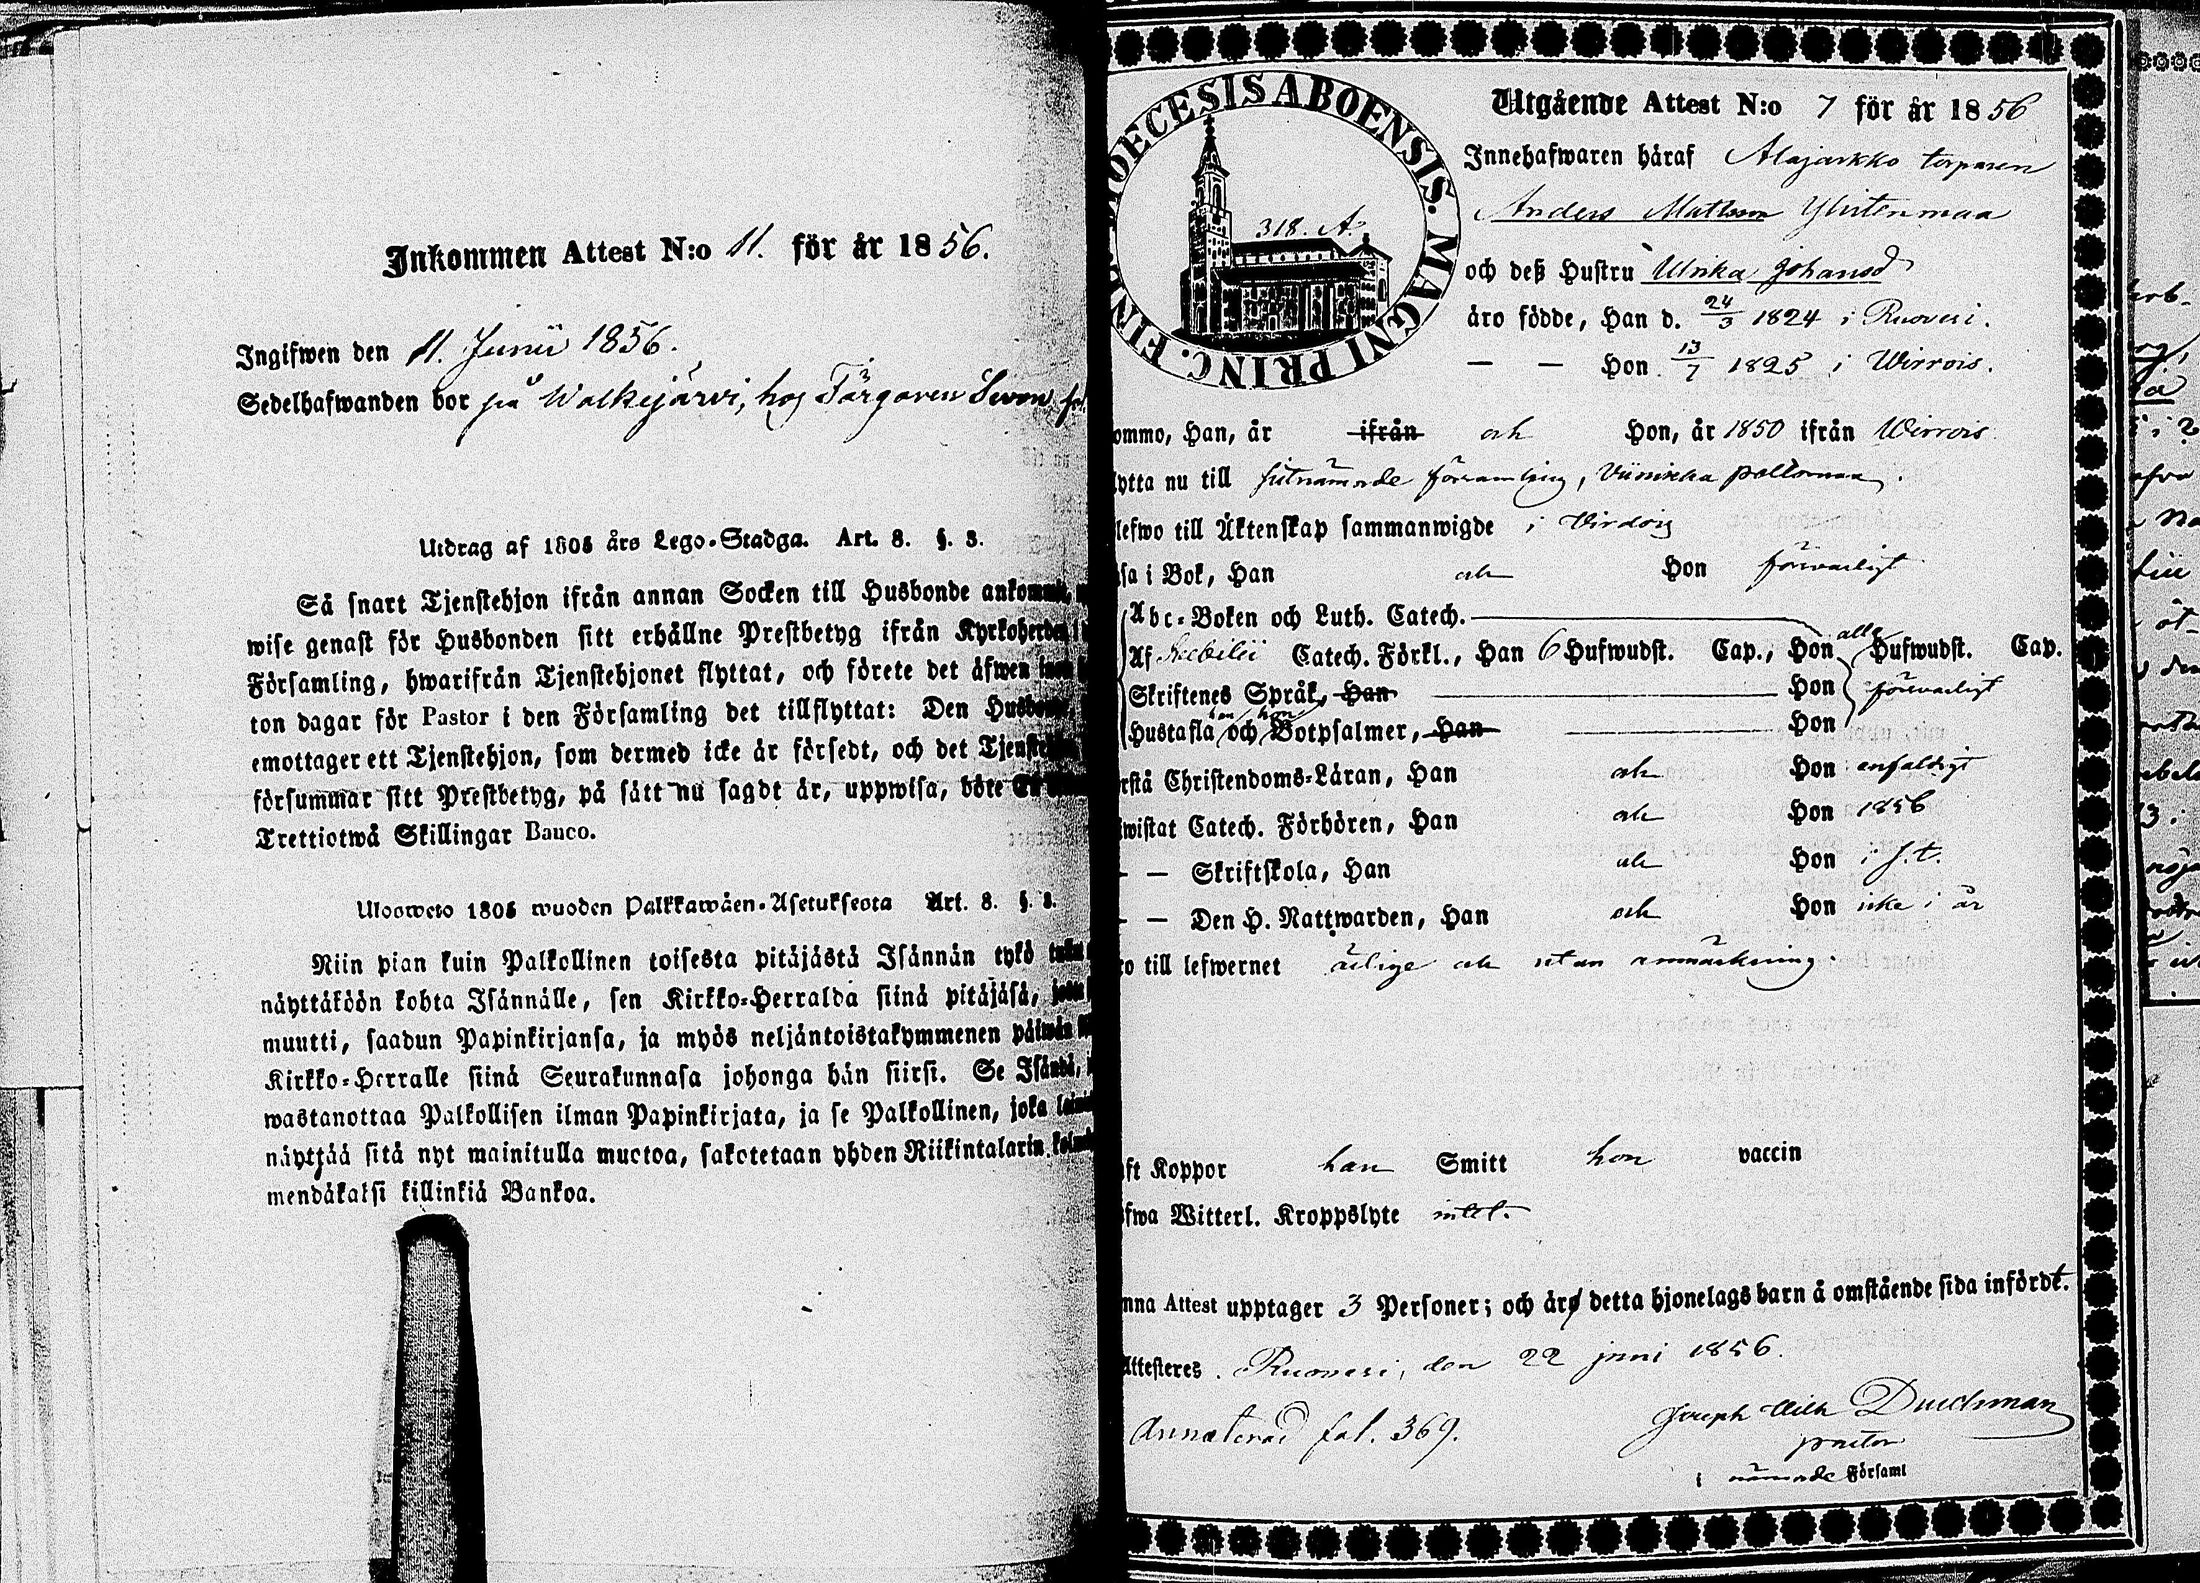 Inkommen Attest N:o 11. för år 1856.
Ingifwen den 11. Junii 1856.
Sedelhafwanden bor på Walkejärvi, hos Färgaren
Utdrag af 1805 års Lego-Stadga. Art. 8. §. 3.
Så snart Tjenstehjon ifrån annan Socken till Husbonde ankommit,
wise genast för Husbonden sitt erhållne Prestbetyg ifrån Kyrkoherden i
Församling, hwarifrån Tjenstehjonet flyttat, och förete det äfwen inom
ton dagar för Pastor i den Församling det tillflyttat: Den Husbonde,
emottager ett Tjenstehjon, som dermed icke är försedt, och det Tjenstehjon,
försummar sitt Prestbetyg, på sätt nu sagdt är, uppwisa, böte
Trettiotwå Skillingar Banco.
Uloswoto 1805 wuoden Palkkawäen-Asetuksesta Art. 8. §. 3.
Niin pian kuin Palkollinen toisesta pitäjästä Isännän tykö
näyttäköön kohta Isännälle, sen Kirkko-Herralda siinä pitäjäsä,
muutti, saadun Papinkirjansa, ja myös neljäntoistakymmenen päiwän
Kirkko-Herralle siinä Seurakunnasa johonga hän siirsi. Se Isändä,
wastanottaa Palkollisen ilman Papinkirjata, ja se Palkollinen, joka
näyttää sitä nyt mainitulla muotoa, sakotetaan yhden Riikintalarin
mendäkaksi killinkiä Bankoa.
DIOECESIS ABOENSIS. MAGNI PRINC. FINL
318. A.
Utgående Attest N:o 7 för år 1856
Innehafwaren häraf Alajarkko torparen
Anders Mattsson Ylistenmaa
och deß Hustru Ulrika Johansd
äro födde, Han d. 24/3 1824 i Ruovesi.
— — Hon 13/7 1825 i Wirrois.
ommo, Han, år ifrån och Hon, år 1850 ifrån Wirrois
lytta nu till sistnämnde församling,
lefwo till Äktenskap sammanwigde i Virdois
sa i Bok, Han och Hon försvarligt
Abc-Boken och Luth. Catech.
Af Catech. Förkl., Han 6 Hufwudst. Cap., Hon alla Hufwudst. Cap.
Skriftenes Språk, Han Hon försvarligt
Hustafla han och hon Botpsalmer, Han Hon
rstå Christendoms-Läran, Han och Hon enfaldigt
wistat Catech. Förhören, Han och Hon 1856
— — Skriftskola, Han och Hon i s. t.
— — Den H. Nattwarden, Han och Hon icke i år
ro till lefwernet ärlige och utan anmärkning.
ft Koppor han Smitt hon vaccin
fwa Witterl. Kroppslyte intet.
nna Attest upptager 3 Personer; och äro detta hjonelags barn å omstående sida infördt.
Attesteres. Ruovesi, den 22 juni 1856.
Annoterad fol. 369.
Joseph Wilh Duchman
pastor
i nämnde Församl